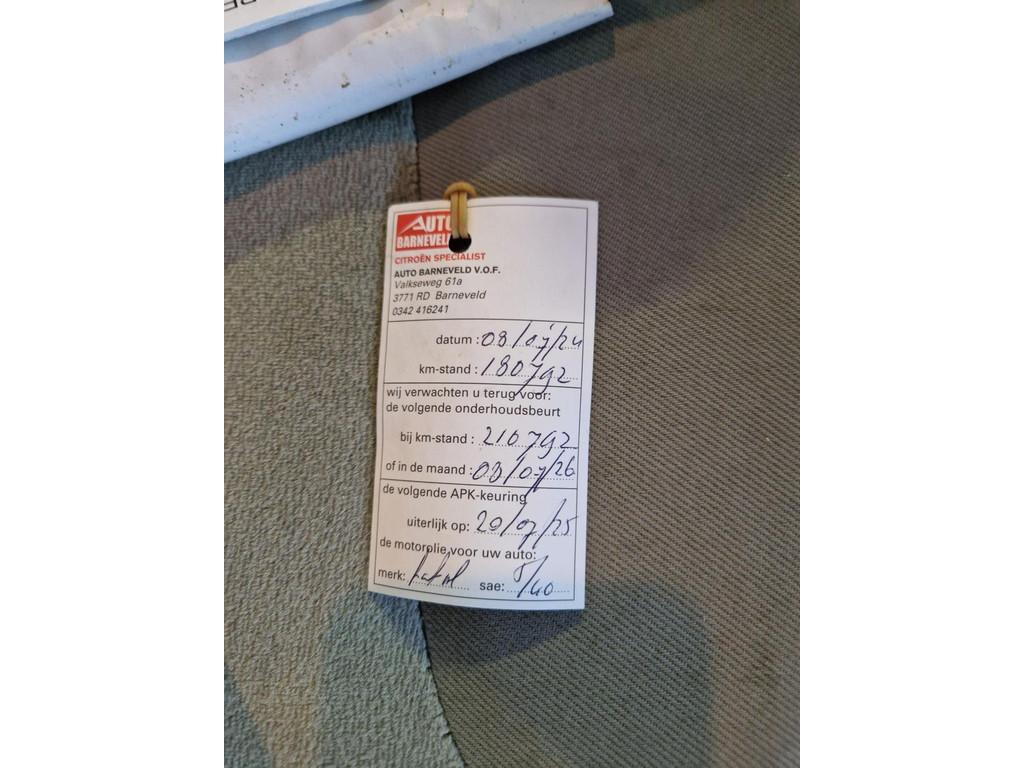 AUTO
BARNEVELD
CITROËN SPECIALIST
AUTO BARNEVELD V.O.F.
Valkseweg 61a
3771 RD Barneveld
0342 416241
datum : 08/07/24
km-stand : 180792
wij verwachten u terug voor:
de volgende onderhoudsbeurt
bij km-stand : 210792
of in de maand : 08/07/26
de volgende APK-keuring
uiterlijk op: 20/07/25
de motorolie voor uw auto:
merk: total sae: 5/40